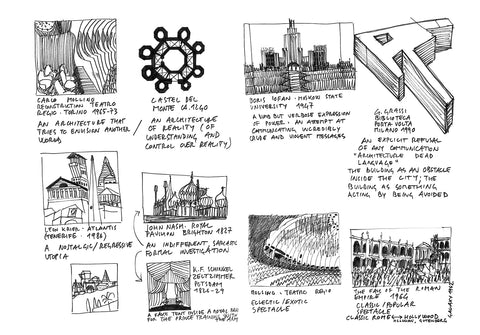 CARLO MOLLINO
RECONSTRUCTION TEATRO
REGIO . TORINO 1965-73
AN ARCHITECTURE THAT
TRIES TO ENVISION ANOTHER
WORLD
CASTEL DEL
MONTE CA. 1240
AN ARCHITECTURE
OF REALITY (OF
UNDERSTANDING AND
CONTROL OVER REALITY)
BORIS IOFAN - MOSKOW STATE
UNIVERSITY 1947
A DUMB BUT VERBOSE EXPRESSION
OF POWER. AN ATTEMPT AT
COMMUNICATING INCREDIBLY
CRUDE AND VIOLENT MESSAGES
G. GRASSI
BIBLIOTECA
PORTA VOLTA
MILANO 1990
AN EXPLICIT REFUSAL
OF ANY COMMUNICATION
"ARCHITECTURE DEAD
LANGUAGE"
THE BUILDING AS AN OBSTACLE
INSIDE THE CITY; THE
BUILDING AS SOMETHING
ACTING BY BEING AVOIDED
LEON KRIER - ATLANTIS
(TENERIFE - 1986)
A NOSTALGIC/REGRESSIVE
UTOPIA
JOHN NASH. ROYAL
PAVILION BRIGHTON 1827
AN INDIFFERENT, SARCASTIC
FORMAL INVESTIGATION
K.F. SCHINKEL
ZELTZIMMER
POTSDAM
1826-29
A FAKE TENT INSIDE A ROYAL
FOR THE PRINCE
MOLLINO. TEATRO REGIO
ECLECTIC/EXOTIC
SPECTACLE
THE FALL OF THE ROMAN
EMPIRE 1964
CLASSIC/POPULAR
SPECTACLE
CLASSIC ROME HOLLYWOOD